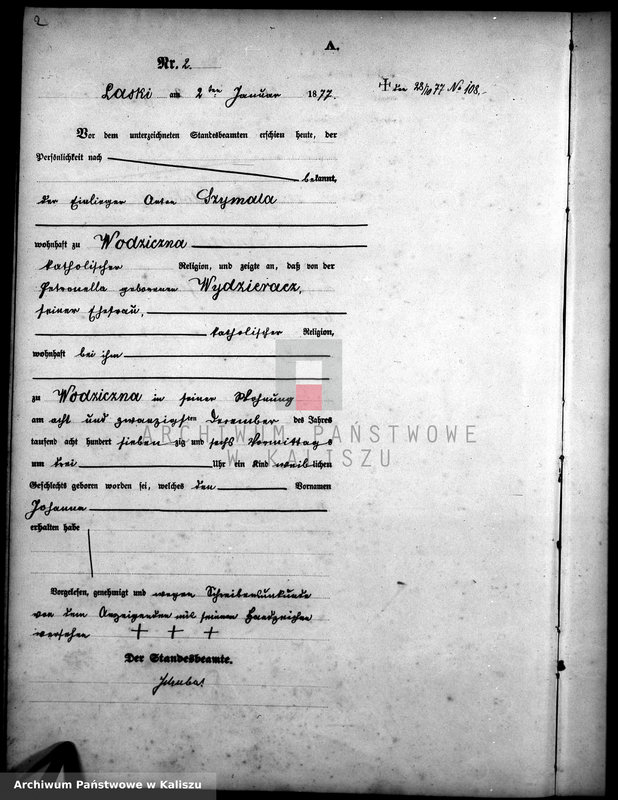 2
A.
Nr. 2.
Laski am 2ten Januar 1877.
+ den 28/10 77 No 108.
Vor dem unterzeichneten Standesbeamten erschien heute, der
Persönlichkeit nach
bekannt,
der Einlieger Anton Szymala
wohnhaft zu Wodziczna
katholischer Religion, und zeigte an, daß von der
Petronella geborenen Wydzieracz,
seiner Ehefrau,
katholischer Religion,
wohnhaft bei ihm
zu Wodziczna in seiner Wohnung
am acht und zwanzigsten Dezember des Jahres
tausend acht hundert sieben zig und sechs Vormittags
um drei Uhr ein Kind weiblichen
Geschlechts geboren worden sei, welches den Vornamen
Johanna
erhalten habe
Vorgelesen, genehmigt und wegen Schreibensunkunde
von dem Anzeigenden mit seinem Handzeichen
versehen + + +
Der Standesbeamte.
ARCHIWUM PAŃSTWOWE
W KALISZU
Archiwum Państwowe w Kaliszu